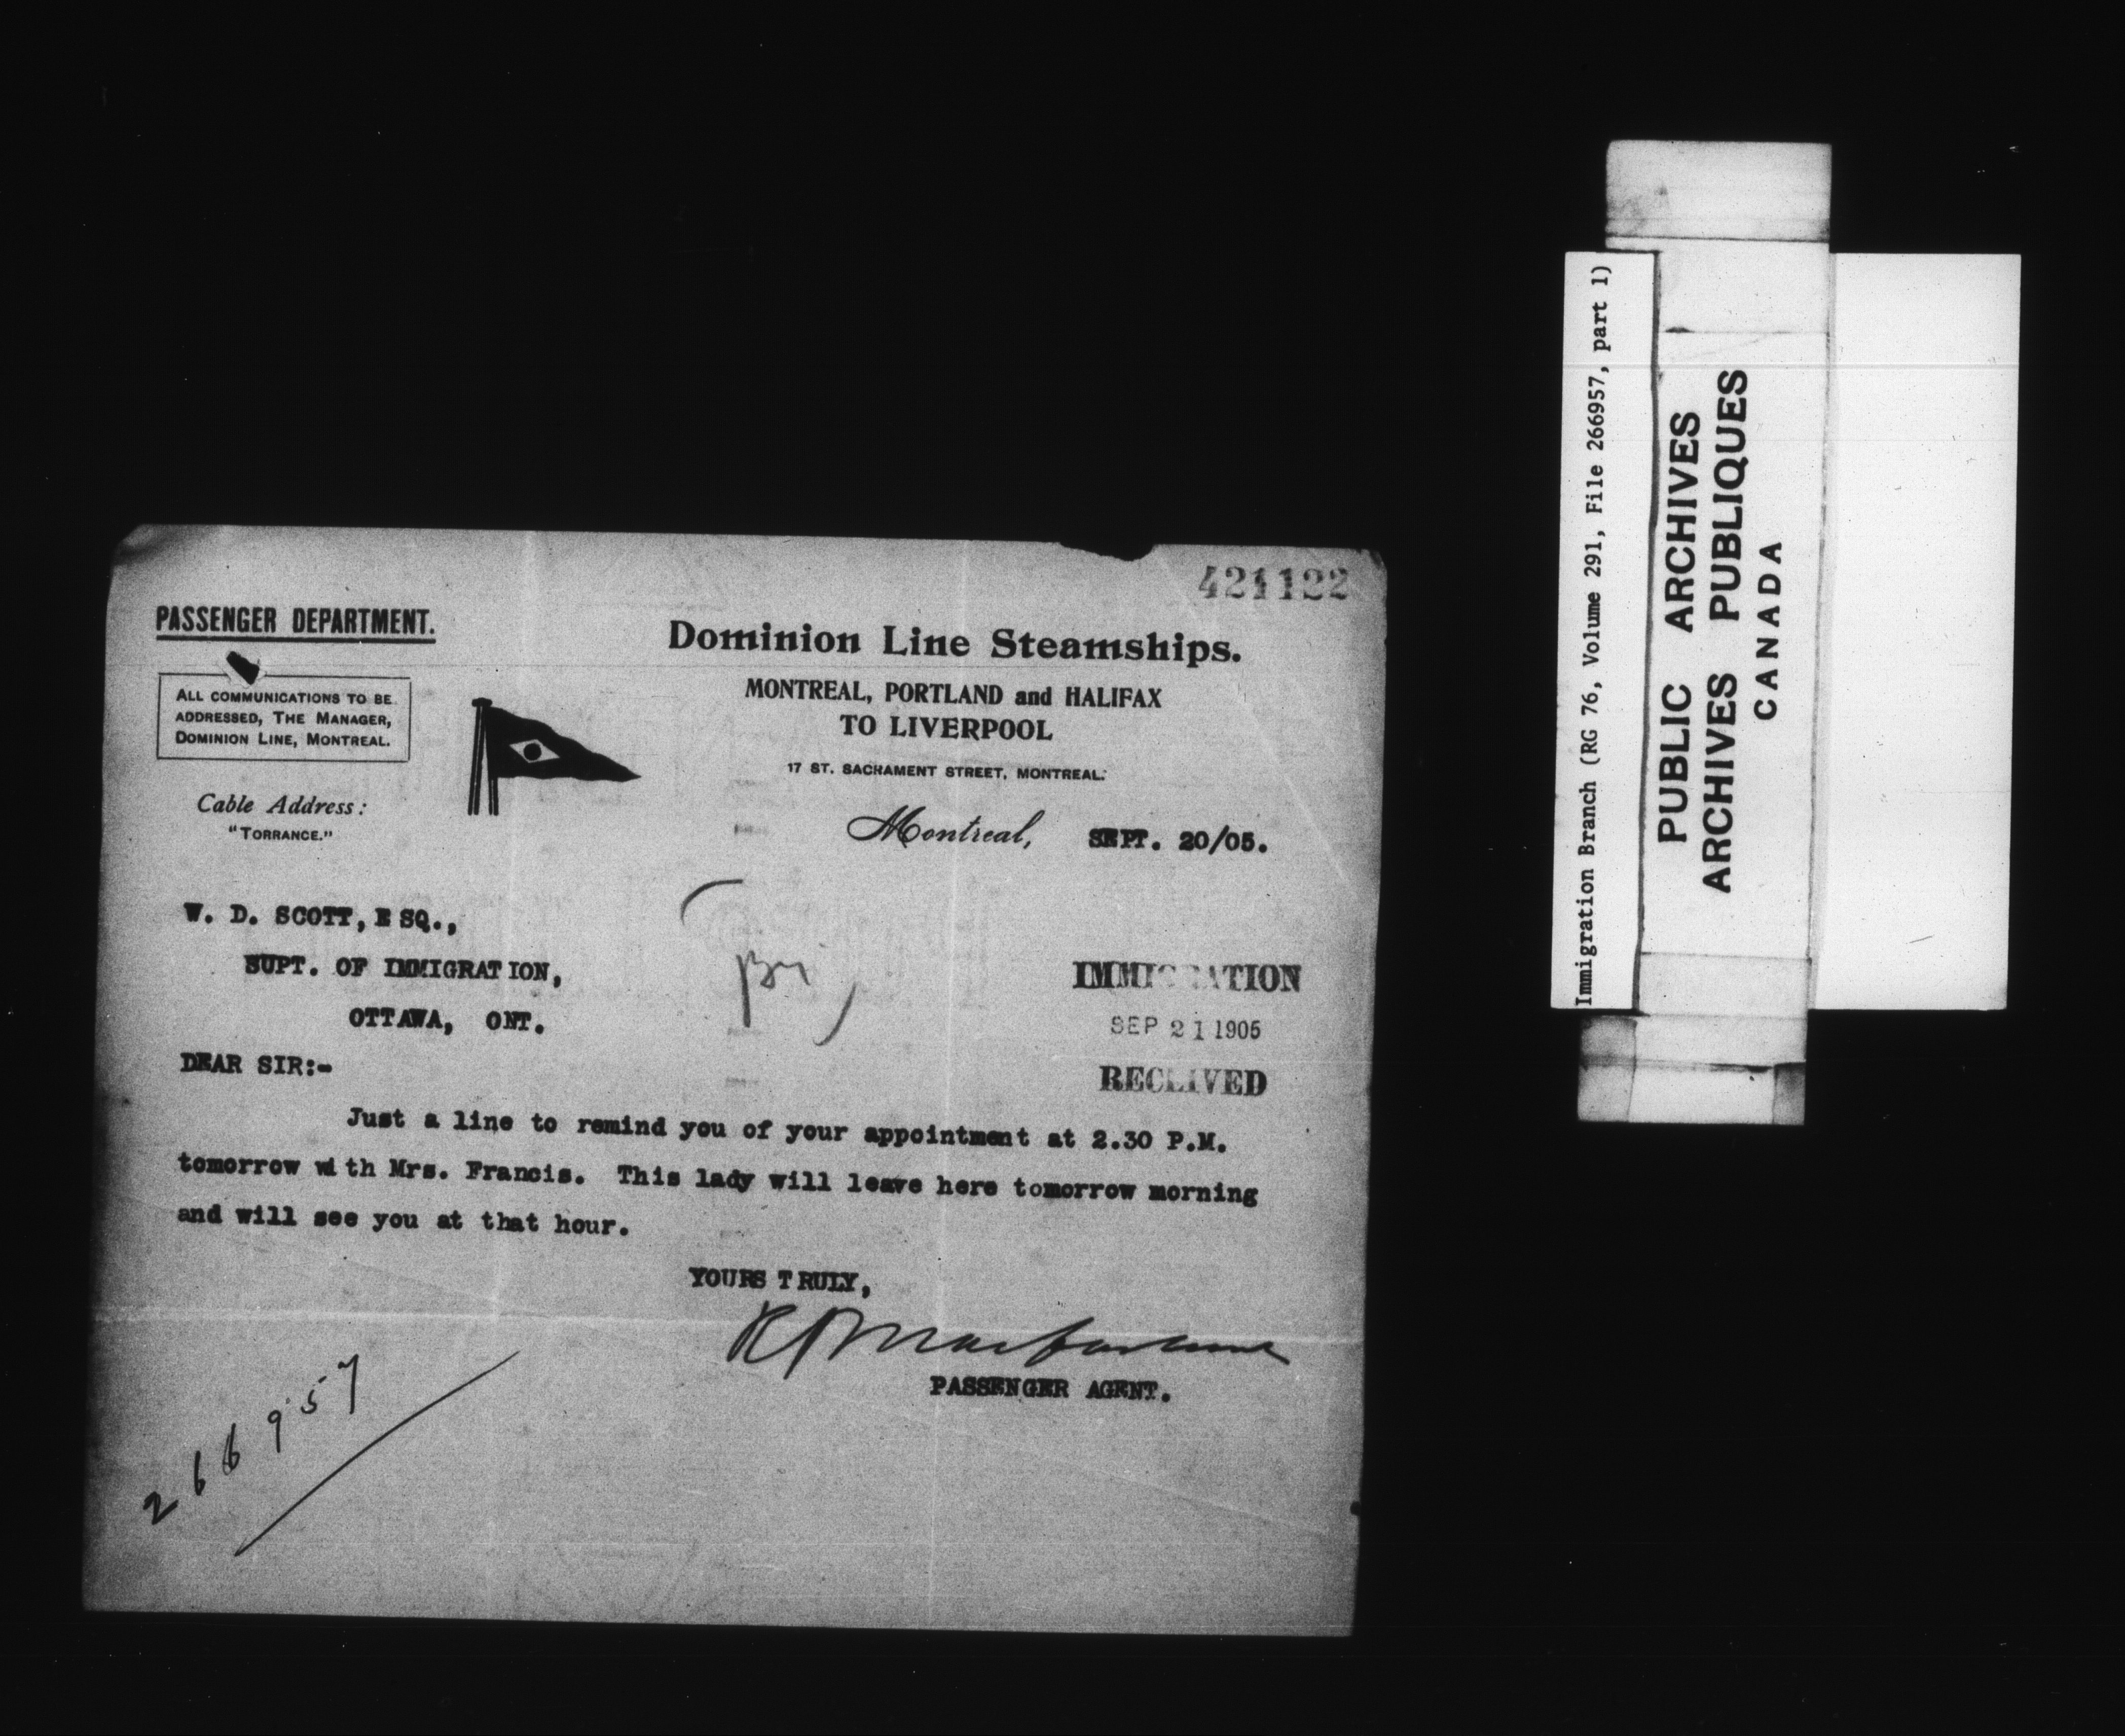 421122
PASSENGER DEPARTMENT.
ALL COMMUNICATIONS TO BE
ADDRESSED, THE MANAGER,
DOMINION LINE, MONTREAL.
Cable Address:
"TORRANCE."
Dominion Line Steamships.
MONTREAL, PORTLAND and HALIFAX
TO LIVERPOOL
17 ST. SACRAMENT STREET, MONTREAL.
Montreal, SEPT. 20/05.
W. D. SCOTT, ESQ.,
SUPT. OF IMMIGRATION,
OTTAWA, ONT.
IMMIGRATION
SEP 21 1905
RECEIVED
DEAR SIR:-
Just a line to remind you of your appointment at 2.30 P.M.
tomorrow with Mrs. Francis. This lady will leave here tomorrow morning
and will see you at that hour.
YOURS TRULY,
PASSENGER AGENT.
266957
Immigration Branch (RG 76, Volume 291, File 266957, part 1)
PUBLIC ARCHIVES
ARCHIVES PUBLIQUES
CANADA